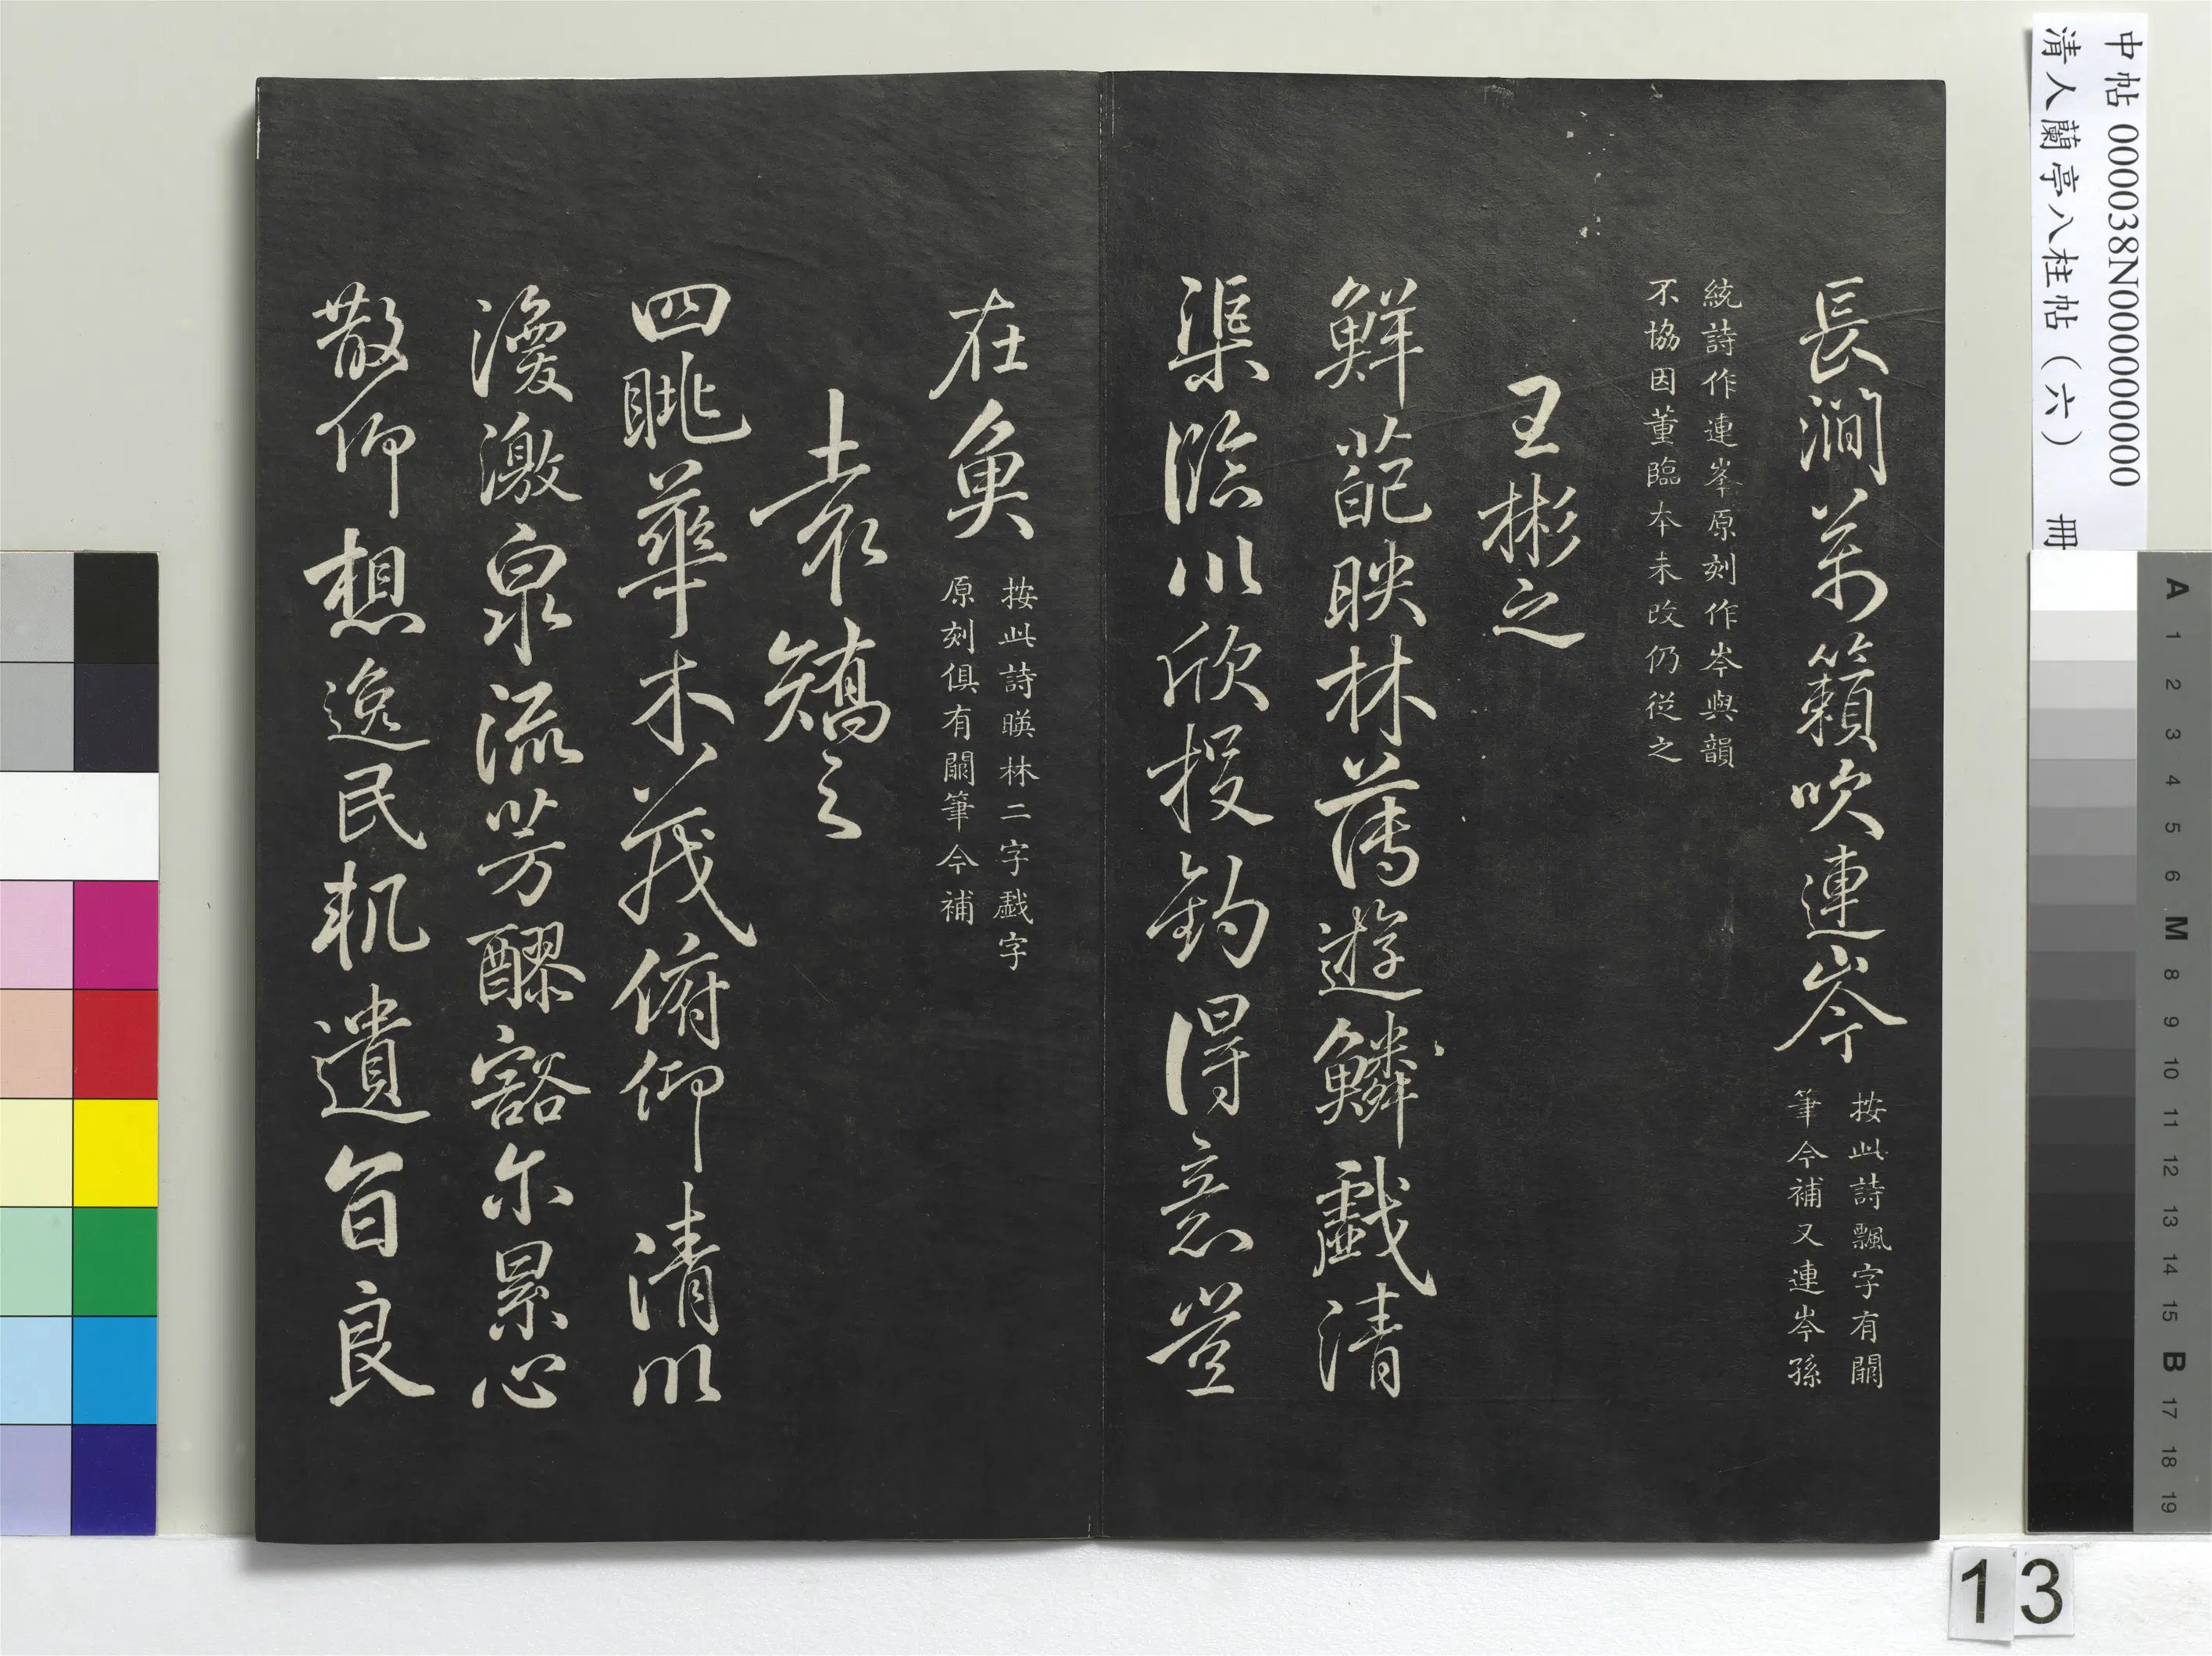 長澗萬籟吹連岑
按此詩飄字有關
筆今補又連岑孫
統詩作連峯原刻作岑與韻
不協因董臨本未改仍從之
王彬之
鮮葩映林薄遊鱗戲清
渠臨川欣投釣得意豈
在魚
按此詩暎林二字戲字
原刻俱有關筆今補
袁矯之
四眺華木茂俯仰清川
渙激泉流芳醪豁尔累心
散仰想逸民軌遺旨良
中帖 000038N000000000
清人蘭亭八柱帖(六) 冊
A
1
2
3
4
5
6
M
8
9
10
11
12
13
14
15
B
17
18
19
13